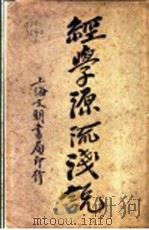 經學源流淺說
上海文明書局印行